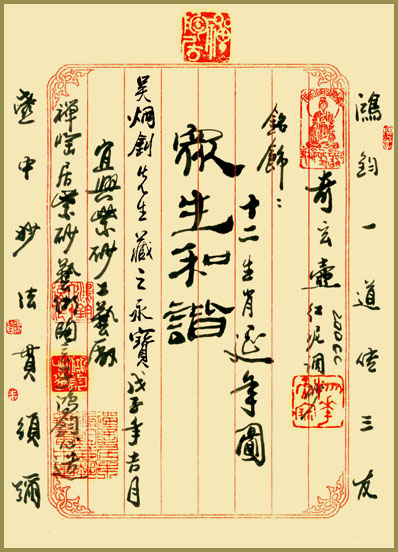 鴻鈞一道傳三友
奇玄壺 紅泥調砂 200cc
銘飾：
十二生肖延年圖
眾生和諧
吳炯釗先生藏之永寶 戊子年吉月
宜興紫砂工藝廠
居紫砂藝術陶 鴻鈞 造
壺中妙法貫須彌